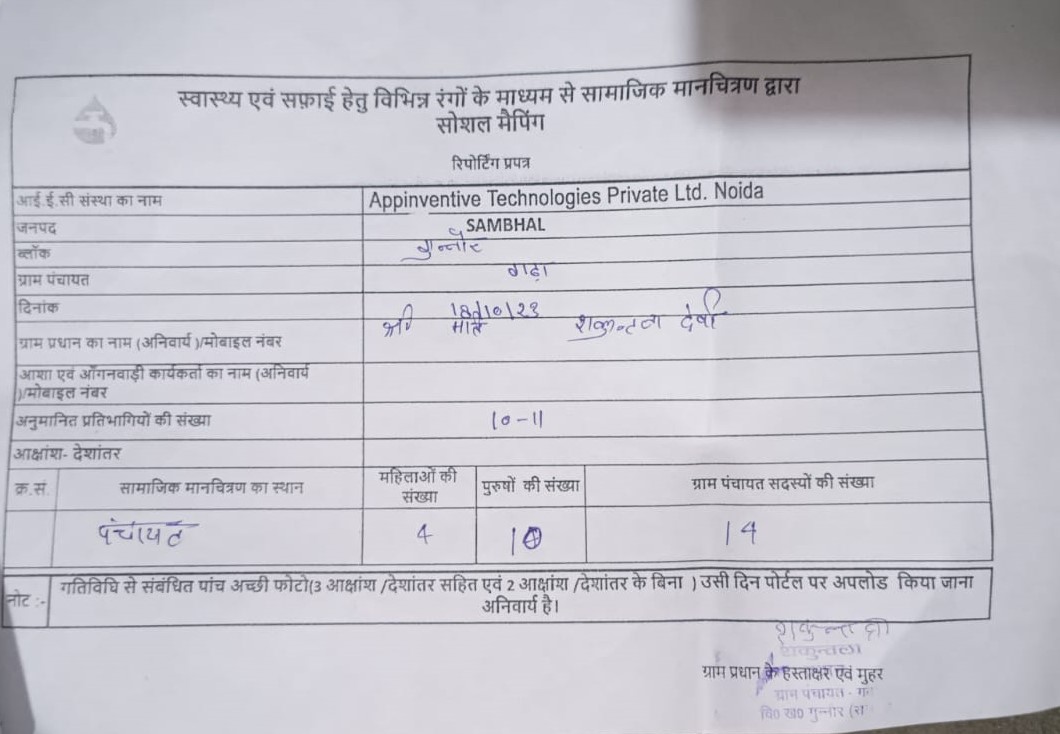 स्वास्थ्य एवं सफ़ाई हेतु विभिन्न रंगों के माध्यम से सामाजिक मानचित्रण द्वारा
सोशल मैपिंग
रिपोर्टिंग प्रपत्र
आई.ई.सी संस्था का नाम Appinventive Technologies Private Ltd. Noida
जनपद SAMBHAL
ब्लॉक गुन्नौर
ग्राम पंचायत गढ़ा
दिनांक
ग्राम प्रधान का नाम (अनिवार्य )/मोबाइल नंबर शकुन्तला देवी
आशा एवं आँगनवाड़ी कार्यकर्ता का नाम (अनिवार्य
)/मोबाइल नंबर
अनुमानित प्रतिभागियों की संख्या 10-11
आक्षांश- देशांतर
क्र.सं. सामाजिक मानचित्रण का स्थान महिलाओं की संख्या पुरुषों की संख्या ग्राम पंचायत सदस्यों की संख्या
पंचायत 4 10 14
नोट :- गतिविधि से संबंधित पांच अच्छी फोटो(3 आक्षांश /देशांतर सहित एवं 2 आक्षांश /देशांतर के बिना ) उसी दिन पोर्टल पर अपलोड किया जाना
अनिवार्य है।
शकुन्तला
ग्राम प्रधान के हस्ताक्षर एवं मुहर
ग्राम पंचायत -
वि० ख० गुन्नौर